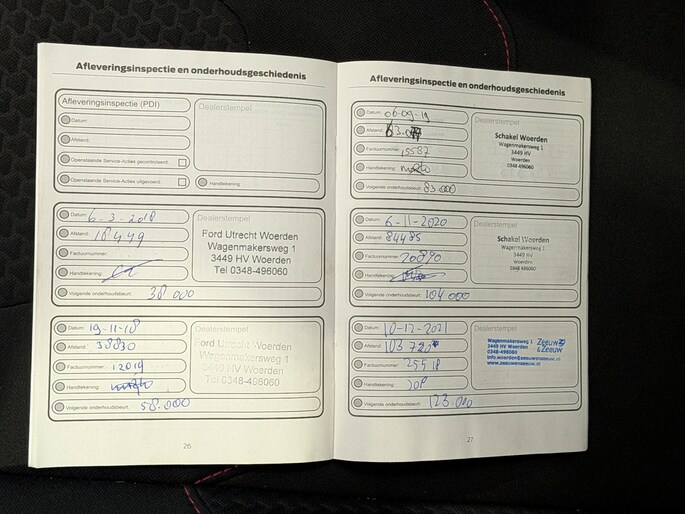 Afleveringsinspectie en onderhoudsgeschiedenis
Afleveringsinspectie (PDI)
Datum:
Afstand:
Openstaande Service-Acties gecontroleerd:
Openstaande Service-Acties uitgevoerd:
Dealerstempel
Handtekening
Datum: 6-3-2018
Afstand: 18449
Factuurnummer:
Handtekening:
Volgende onderhoudsbeurt: 38 000
Dealerstempel
Ford Utrecht Woerden
Wagenmakersweg 1
3449 HV Woerden
Tel 0348-496060
Datum: 19-11-18
Afstand: 38830
Factuurnummer: 12019
Handtekening:
Volgende onderhoudsbeurt: 58.000
Dealerstempel
Ford Utrecht Woerden
Wagenmakersweg 1
3449 HV Woerden
Tel 0348-496060
26
Afleveringsinspectie en onderhoudsgeschiedenis
Datum: 06-09-19
Afstand:
Factuurnummer: 15582
Handtekening:
Volgende onderhoudsbeurt: 83.000
Dealerstempel
Schakel Woerden
Wagenmakersweg 1
3449 HV
Woerden
0348-496060
Datum: 6-11-2020
Afstand: 84485
Factuurnummer: 20890
Handtekening:
Volgende onderhoudsbeurt: 104 000
Dealerstempel
Schakel Woerden
Wagenmakersweg 1
3449 HV
Woerden
0348-496060
Datum: 10-12-2021
Afstand:
Factuurnummer: 25518
Handtekening:
Volgende onderhoudsbeurt: 123.000
Dealerstempel
Wagenmakersweg 1
3449 HV Woerden
0348-496060
info.woerden@zeeuwenzeeuw.nl
www.zeeuwenzeeuw.nl
Zeeuw
& Zeeuw
27